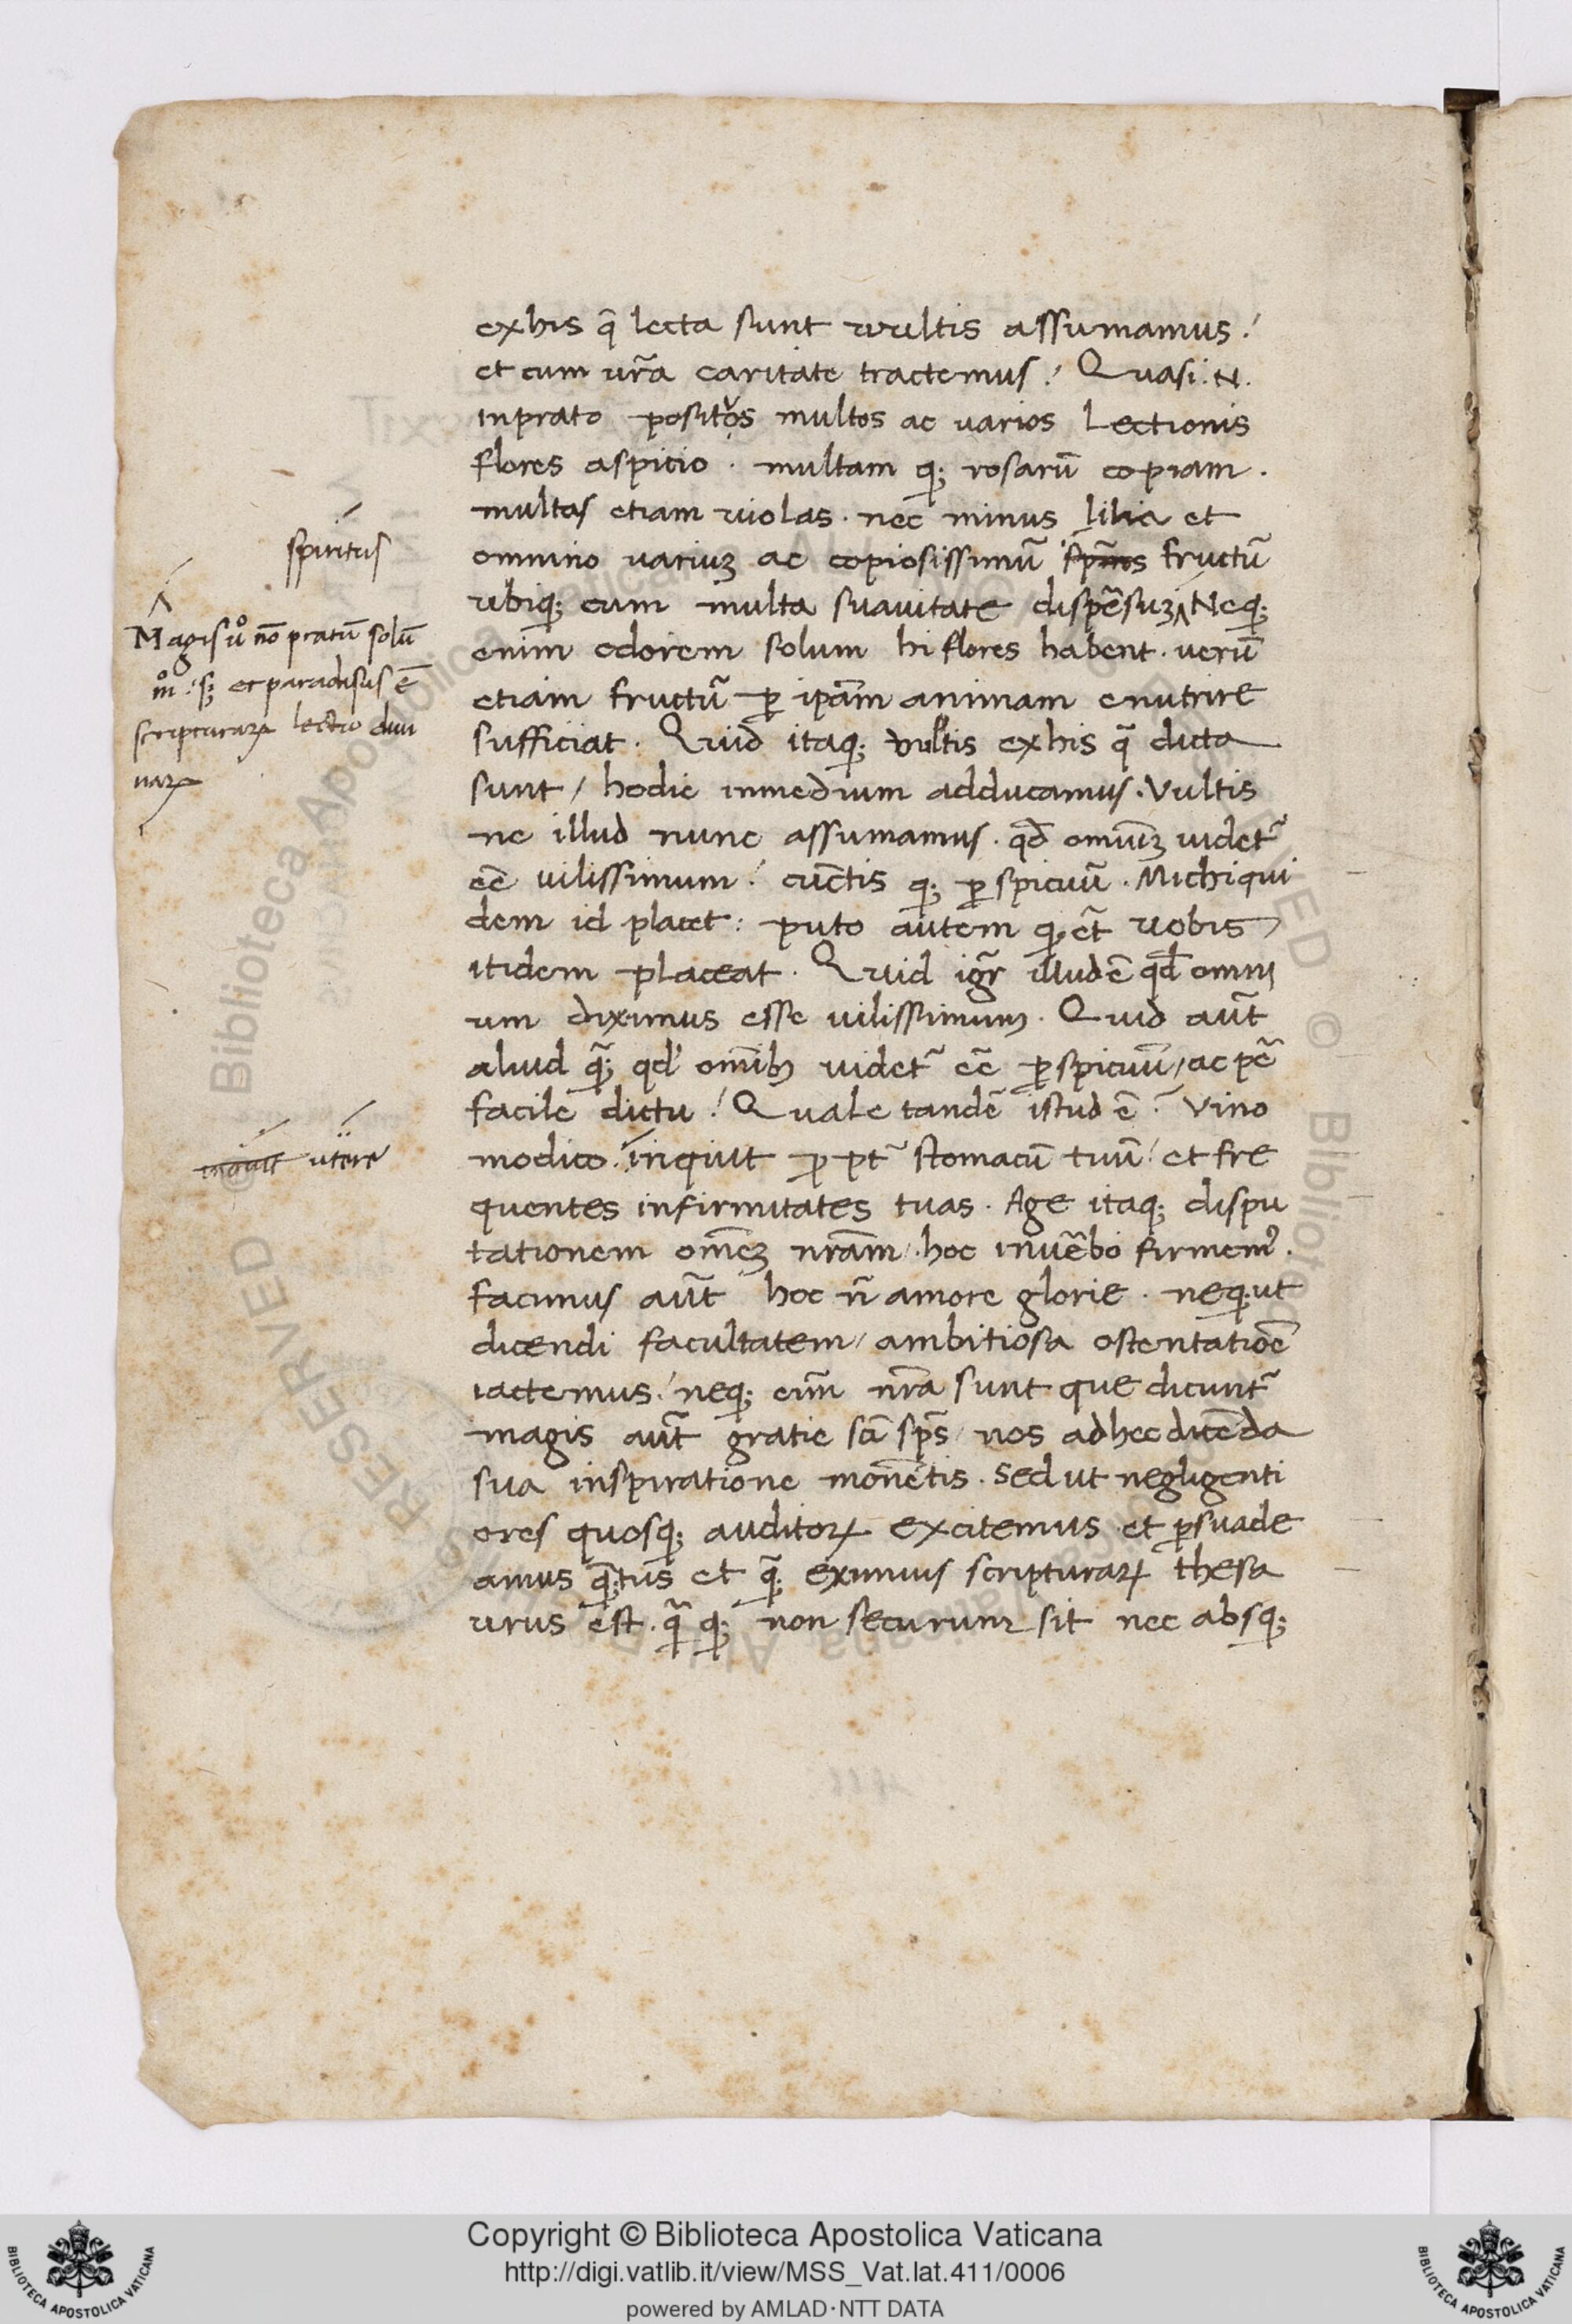 exhis q̃ lecta sunt vultis assumamus:
et cum vr̃a caritate tractemus: Quasi .N.
inprato positos multos ac varios Lectionis
flores aspicio . multam q; rosarũ copiam .
multas etiam violas . nec minus lilia et
omnino variuʒ ac copiosissimũ fructũ
vbiq; cum multa suauitate dispẽsuʒ Neq;
enim odorem solum hi flores habent . verũ
etiam fructũ ꝑ ipãm animam enutrire
sufficiat . Quid itaq; vultis exhis q̃ dicta
sunt / hodie inmedium adducamus . Vultis
ne illud nunc assumamus . qd̃ omniuʒ videt̃
eẽ vilissimum : cũctis q; ꝑspicuũ . Michi qui
dem id placet : puto autem q; et̃ vobis
itidem placeat . Quid igr̃ illud ẽ qd̃ omni
um diximus esse vilissimum . Quid aũt
aliud q̃; qd' omĩbʒ videt̃ eẽ ꝑspicuũ / ac pẽ
facile dictu : Quale tandẽ istud ẽ : Vino
modico . inquit ꝓpt̃ stomacũ tuũ : et fre
quentes infirmitates tuas . Age itaq; dispu
tationem omẽʒ nrãm hoc inuẽbo firmem9 .
facimus aũt hoc ñ amore glorie . neq; ut
dicendi facultatem / ambitiosa ostentatiõe
iactemus : neq; enĩm nr̃a sunt que dicunt̃
magis aũt gratie sc̃i sp̃s / nos adhec dicẽda
sua inspiratione monẽtis . Sed ut negligenti
ores quosq; auditoꝝ excitemus et ꝑsuade
amus q̃;tus et q̃; eximius scripturaꝝ thesa
urus est . q̃ q; non securum sit nec absq;
spiritus
Magis ũo nõ pratũ solũ
m̊ : sʒ et paradisus ẽ
scripturaꝝ lectio diui
naꝝ
inquit utere
Copyright © Biblioteca Apostolica Vaticana
http://digi.vatlib.it/view/MSS_Vat.lat.411/0006
powered by AMLAD·NTT DATA
BIBLIOTECA APOSTOLICA VATICANA
BIBLIOTECA APOSTOLICA VATICANA